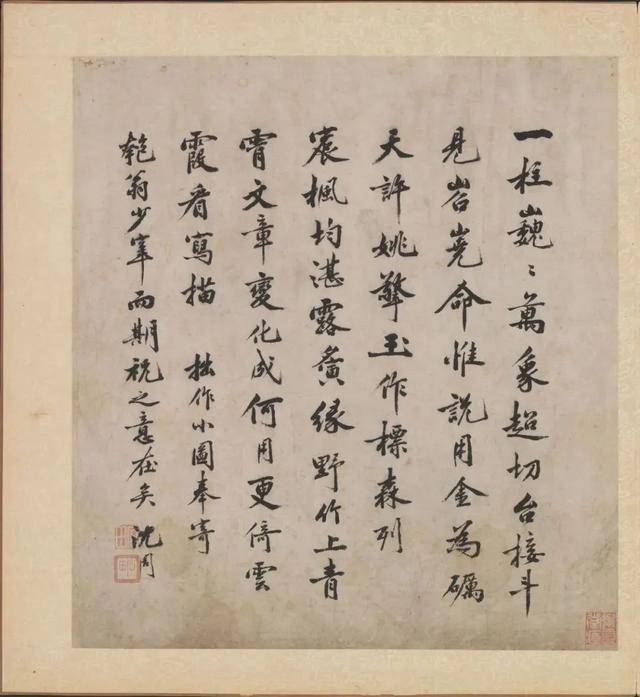 一柱巍〻萬象超切台接斗
見岧嶢命惟說用金為礪
天許姚擎玉作標森列
宸楓均湛露夤緣野竹上青
霄文章變化成何用更倚雲
霞看寫描 拙作小圖奉寄
匏翁少宰而期祝之意在矣 沈周